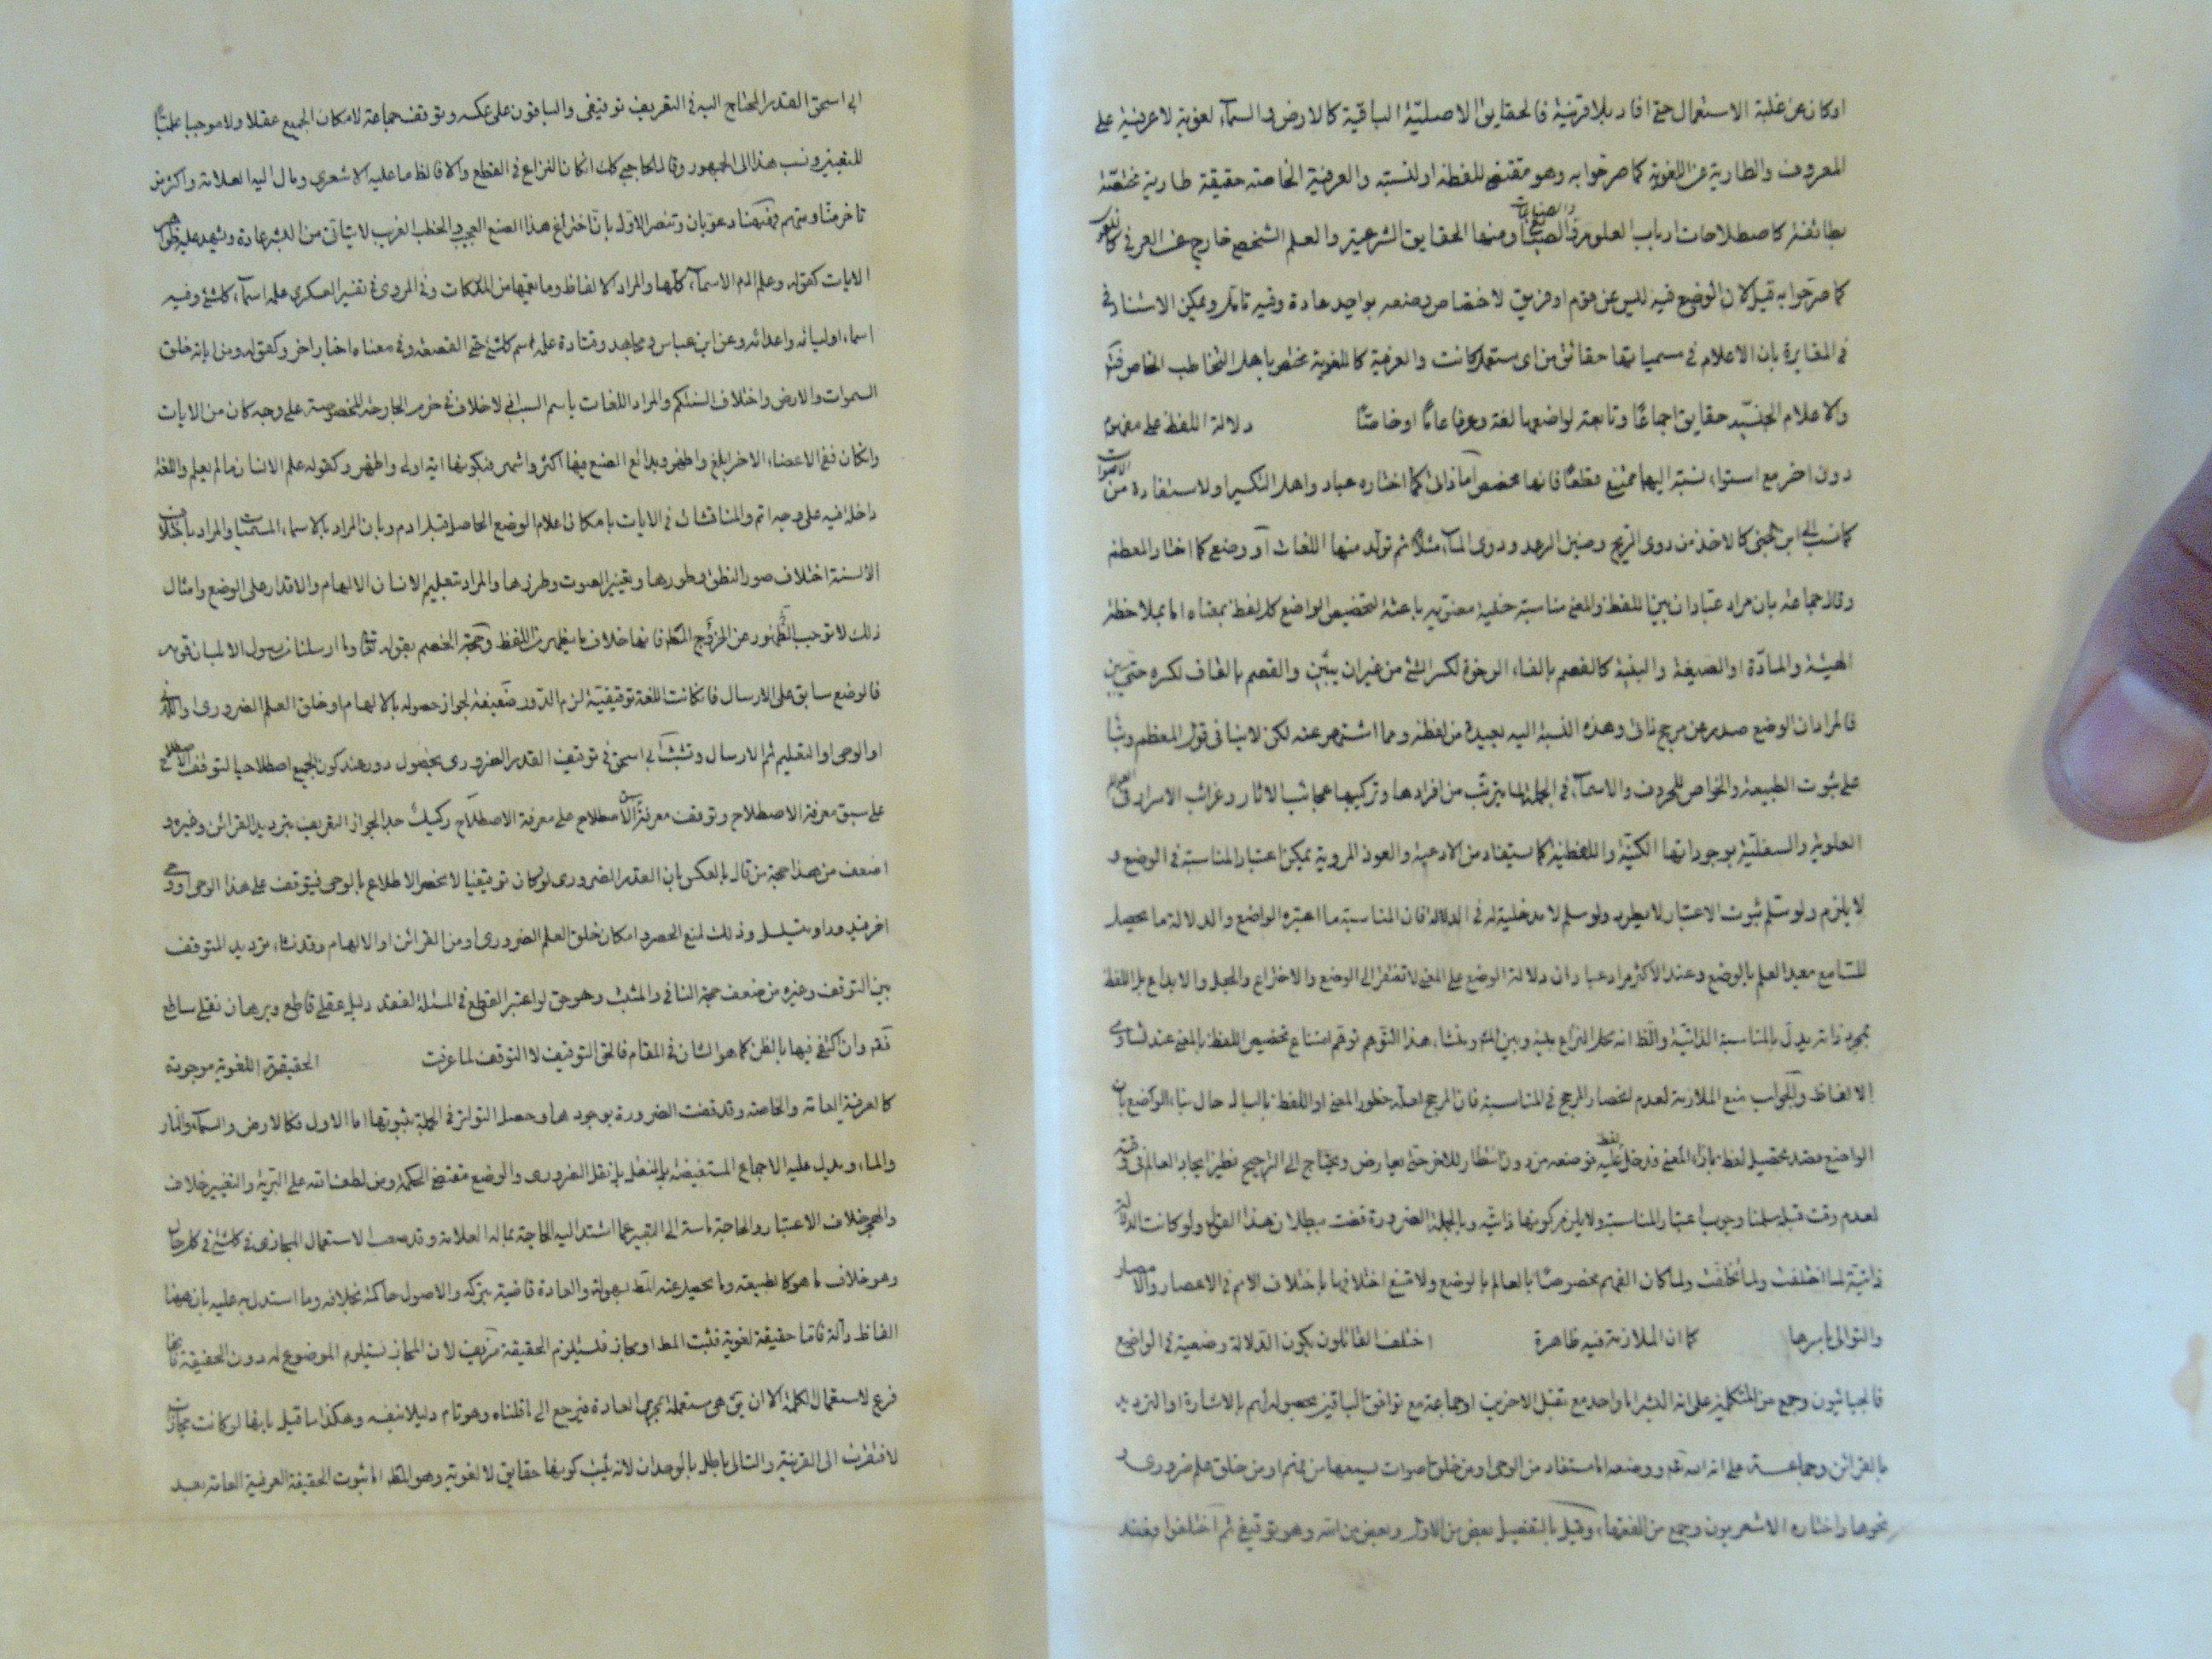 او كان عن غلبة الاستعمال حتى افاد بلا قرينة فالحقايق الاصليّة الباقية كالارض والسمآء لغوية لا عرفية على
المعروف والطارية عن اللغوية كما صرحوا به وهو مقتضى للفظة او لنسبته والعرفية الخاصته حقيقة طارية مختصّة
بطائفة كاصطلاحات ارباب العلوم والصنايع ومنها الحقايق الشرعية والعلم الشخصى خارج عن العرفى كاللغوى
كما صرّحوا به قيل لان الوضع فيه ليس عن قوم او فريق لاختصاص وضعه بواحد عادة وفيه تامّل ويمكن الاستناد فى
فى المغايرة بان الاعلام فى مسمياتها حقائق من اى مستعمل كانت والعرفية كاللغوية مختص باهل التخاطب الخاص
والاعلام الجنسيّة حقايق اجماعًا وتابعة لواضعها لغة وعرفا عامًا او خاصّا دلالة اللفظ على مفهوم
دون اخر مع استواء نسبته اليها ممتنع قطعًا فانها مخصص اما ذاتى كما اختاره عباد واهل التكسير او لاستفادة من الاصوات
كما نسب الى ابن جنى كالاخذ من دوى الريح وحنين الرعد ودوى المآء مثلا ثم تولّد منها اللغات او وضعى كما اختار المعظم
وقال جماعة بان مراد عبّاد ان بين اللفظ والمعنى مناسبة خفية معنويه باعثة لتخصيص الواضع كل لفظ بمعناه اما بملاحظة
الهيئة والمادّة او الصيغة والبنية كالفصم بالفاء الرخوة لكسر الشئ من غير ان يبيّن والقصم بالقاف لكسره حتى يبين
فالمراد ان الوضع صدر عن مرجح ذاتى وهذه النسبة اليه بعيدة من لفظه ومما اشتهر عنه لكن لا ينافى قول المعظم
على ثبوت الطبيعة والخواص للحروف والاسمآء فى الجملة لما يترتّب من افرادها وتركيبها عجائب الاثار وغرائب الاسرار فى العوالم
العلوية والسفليّة بوجوداتها الكتبيّة واللفظية كما يستفاد من الادعية والعوذ المروية يمكن اعتبار المناسبة فى الوضع و
لا يلزم ولو سلّم ثبوت الاعتبار لا يطرد ولو سلم لا مدخلية له فى الدلالة فان المناسبة ما اعتبره الواضع والدلالة ما يحصل
للسّامع بعد العلم بالوضع وعند الاكثر مراد عباد ان دلالة الوضع على المعنى لا تفتقر الى الوضع والاختراع والجعل والابداع بل اللفظ
بمجرد ذاته يدلّ بالمناسبة الذاتيّة والظ انه محل النزاع بينه وبين المش ومنشاء هذا التوهم توهم امتناع تخصيص اللفظ بالمعنى عند تساوى
الالفاظ والجواب منع الملازمة لعدم انحصار المرجح فى المناسبة فان المرجح لعله خطور المعنى او اللفظ بالبال حال
الواضع لعدم تحصيل لفظ بازاء المعنى من دون انتظار للاخر حتى يعارض ويحتاج الى الترجيح نظير ايجاد العالم فى وقته
لعدم وقت قبله سلمنا وجوب اعتبار المناسبة ولا يلزم كونها ذاتيّة وبالجملة الضرورة قضت ببطلان هذا القول ولو كانت الدلالة
ذاتيّة لما اختلفت ولما تخلّفت ولما كان الفهم مخصوصًا بالعالم بالوضع ولامتنع اختلافها باختلاف الامم فى الاعصار والامصار
والتوالى باسرها كما ان الملازمة فيه ظاهرة اختلف القائلون بكون الدّلالة وضعية فى الواضع
فالجبائيون وجمع من المتكلمين على انه البشر اما واحد مع تقبل الاخرين او جماعة مع توافق الباقين بحصوله لهم بالاشارة او الترديد
بالقرائن وجماعة على انه الله عز ووضعه اما مستفاد من الوحى او من خلق اصوات يسمعها من يفهم او من خلق علم ضرورى
نحوها واختاره الاشعريون وجمع من الفقهاء وقيل بالتفصيل بعض من الاول وبعض من الله وهو توقيفى ثم اختلفوا فعند
ابى اسحق القدر المحتاج اليه فى التعريف توقيفى والباقون على عكسه وتوقف جماعة لامكان الجميع عقلا ولا موجبا علميّا
للتعيين ونسب هذا الى الجمهور وقال الحاجبى كك ان كان النزاع فى القطع والا فالظ ما عليه الاشعرى ومال اليه العلامة واكثر من
تاخر منّا ومنهم فههنا دعويان وتنصر الاول بانّ اختراع هذا الصنع العجيب والخطب الغريب لا يتاتّى من البشر عادة وتشهد عليه ظواهر
الايات كقوله وعلم ادم الاسمآء كلّها والمراد الالفاظ وما يعمها من الملكات وفى المروى فى تفسير العسكرى علمه اسمآء كل شئ وفيه
اسماء اوليائه واعدائه وعن ابن عباس ومجاهد وقتادة علّمه اسم كل شئ حتى القصعة وفى معناه اخبار اخر وكقوله ومن اياته خلق
السموات والارض واختلاف السنتكم والمراد اللغات باسم السبب اذ لا خلاف فى جرم الجارحة المخصوصة على وجه كان من الايات
وان كان ففى الاعضاء الاخر ابلغ واظهر وبدائع الصنع فيها اكثر واشهر فتكونها اية اولى واظهر وكقوله علم الانسان ما لم يعلم واللغة
داخلة فيه على وجه اتم والمناقشات فى الايات بامكان اعلام الوضع الحاصل قبل ادم وبان المراد بالاسماء المسميّات والمراد باختلاف
الالسنة اختلاف صور النطق وطورها وبتغيير الصوت وطرزها والمراد بتعليم الانسان الالهام والاقدار على الوضع وامثال
ذلك لا توجب الظهور عن الحجج المتكلة فانها خلاف ما يظهر من اللفظ وحجة الخصم بقوله تعالى وما ارسلنا من رسول الا بلسان قومه
فالوضع سابق على الارسال فان كانت اللغة توقيفيّة لزم الدّور ضعيفة لجواز حصوله بالالهام او خلق العلم الضرورى
او الوحى او التعليم ثم الارسال وتشبّث ابى اسحق فى توقيف القدر الضرورى بحصول دور عند كون الجميع اصطلاحيا لتوقف الاصطلاح
على سبق معرفة الاصطلاح وتوقف معرفة الاصطلاح على معرفة الاصطلاح ركيك جدا لجواز التعريف بترديد القرائن وغيره و
اضعف من هذا حجة من قال بالعكس بان القدر الضرورى لو كان توقيفيا لانحصر الاطلاع بالوحى فيتوقف على هذا الوحى او وحى
اخر فيدور او يتسلسل وذلك لمنع الحصر وامكان خلق العلم الضرورى او من القرائن او الالهام وقد نشاء ترديد المتوقف
بين التوقف وغيره من ضعف حجة النافى والمثبت وهو حق لو اعتبر القطع فى المسئلة لفقد دليل عقلى قاطع وبرهان نقلى ساطع
فقه وان اكتفى فيها بالظن كما هو الشان فى المقام فالحق التوقيف لا التوقف لما عرفت الحقيقة اللغوية موجودة
كالعرفية العامة والخاصة وقد قضت الضرورة بوجودها وحصل التواتر فى الجملة بثبوتها اما الاول فكالارض والسمآء والنار
والماء ويدل عليه الاجماع المستفيضة بل النقل الضرورى والوضع مقتضى الحكمة ومن لطف الله على البرية والتغيير خلاف
والهجر خلاف الاعتبار والحاجة ماسة الى التعبير عما اشتد اليه الحاجة بما له العلامة وقد صعب الاستعمال المجازى فى كل شئ فى كل حال
وهو خلاف لما هو كالطبيعة وما يحصل عنه المط بسهولة والعادة قاضية بتركه والاصول حاكمة بخلافه وما استدل به عليه بان ههنا
الفاظ دآلة فاما حقيقة لغوية فثبت المط او مجاز فتستلزم الحقيقة مزيف لان المجاز يستلزم الموضوع له دون الحقيقة فانها
فرع لاستعمال الكلمة الا ان يق هى مستعملة بجرى العادة فيرجع الى ما قلناه وهو تام دليلا بنفسه وهكذا ما قيل بانها لو كانت مجازات
لافتقرت الى القرينة والتالى باطل بالوجدان لانه يثبت كونها حقايق لا لغوية وهو المط اما ثبوت الحقيقة العرفية العامة بعد